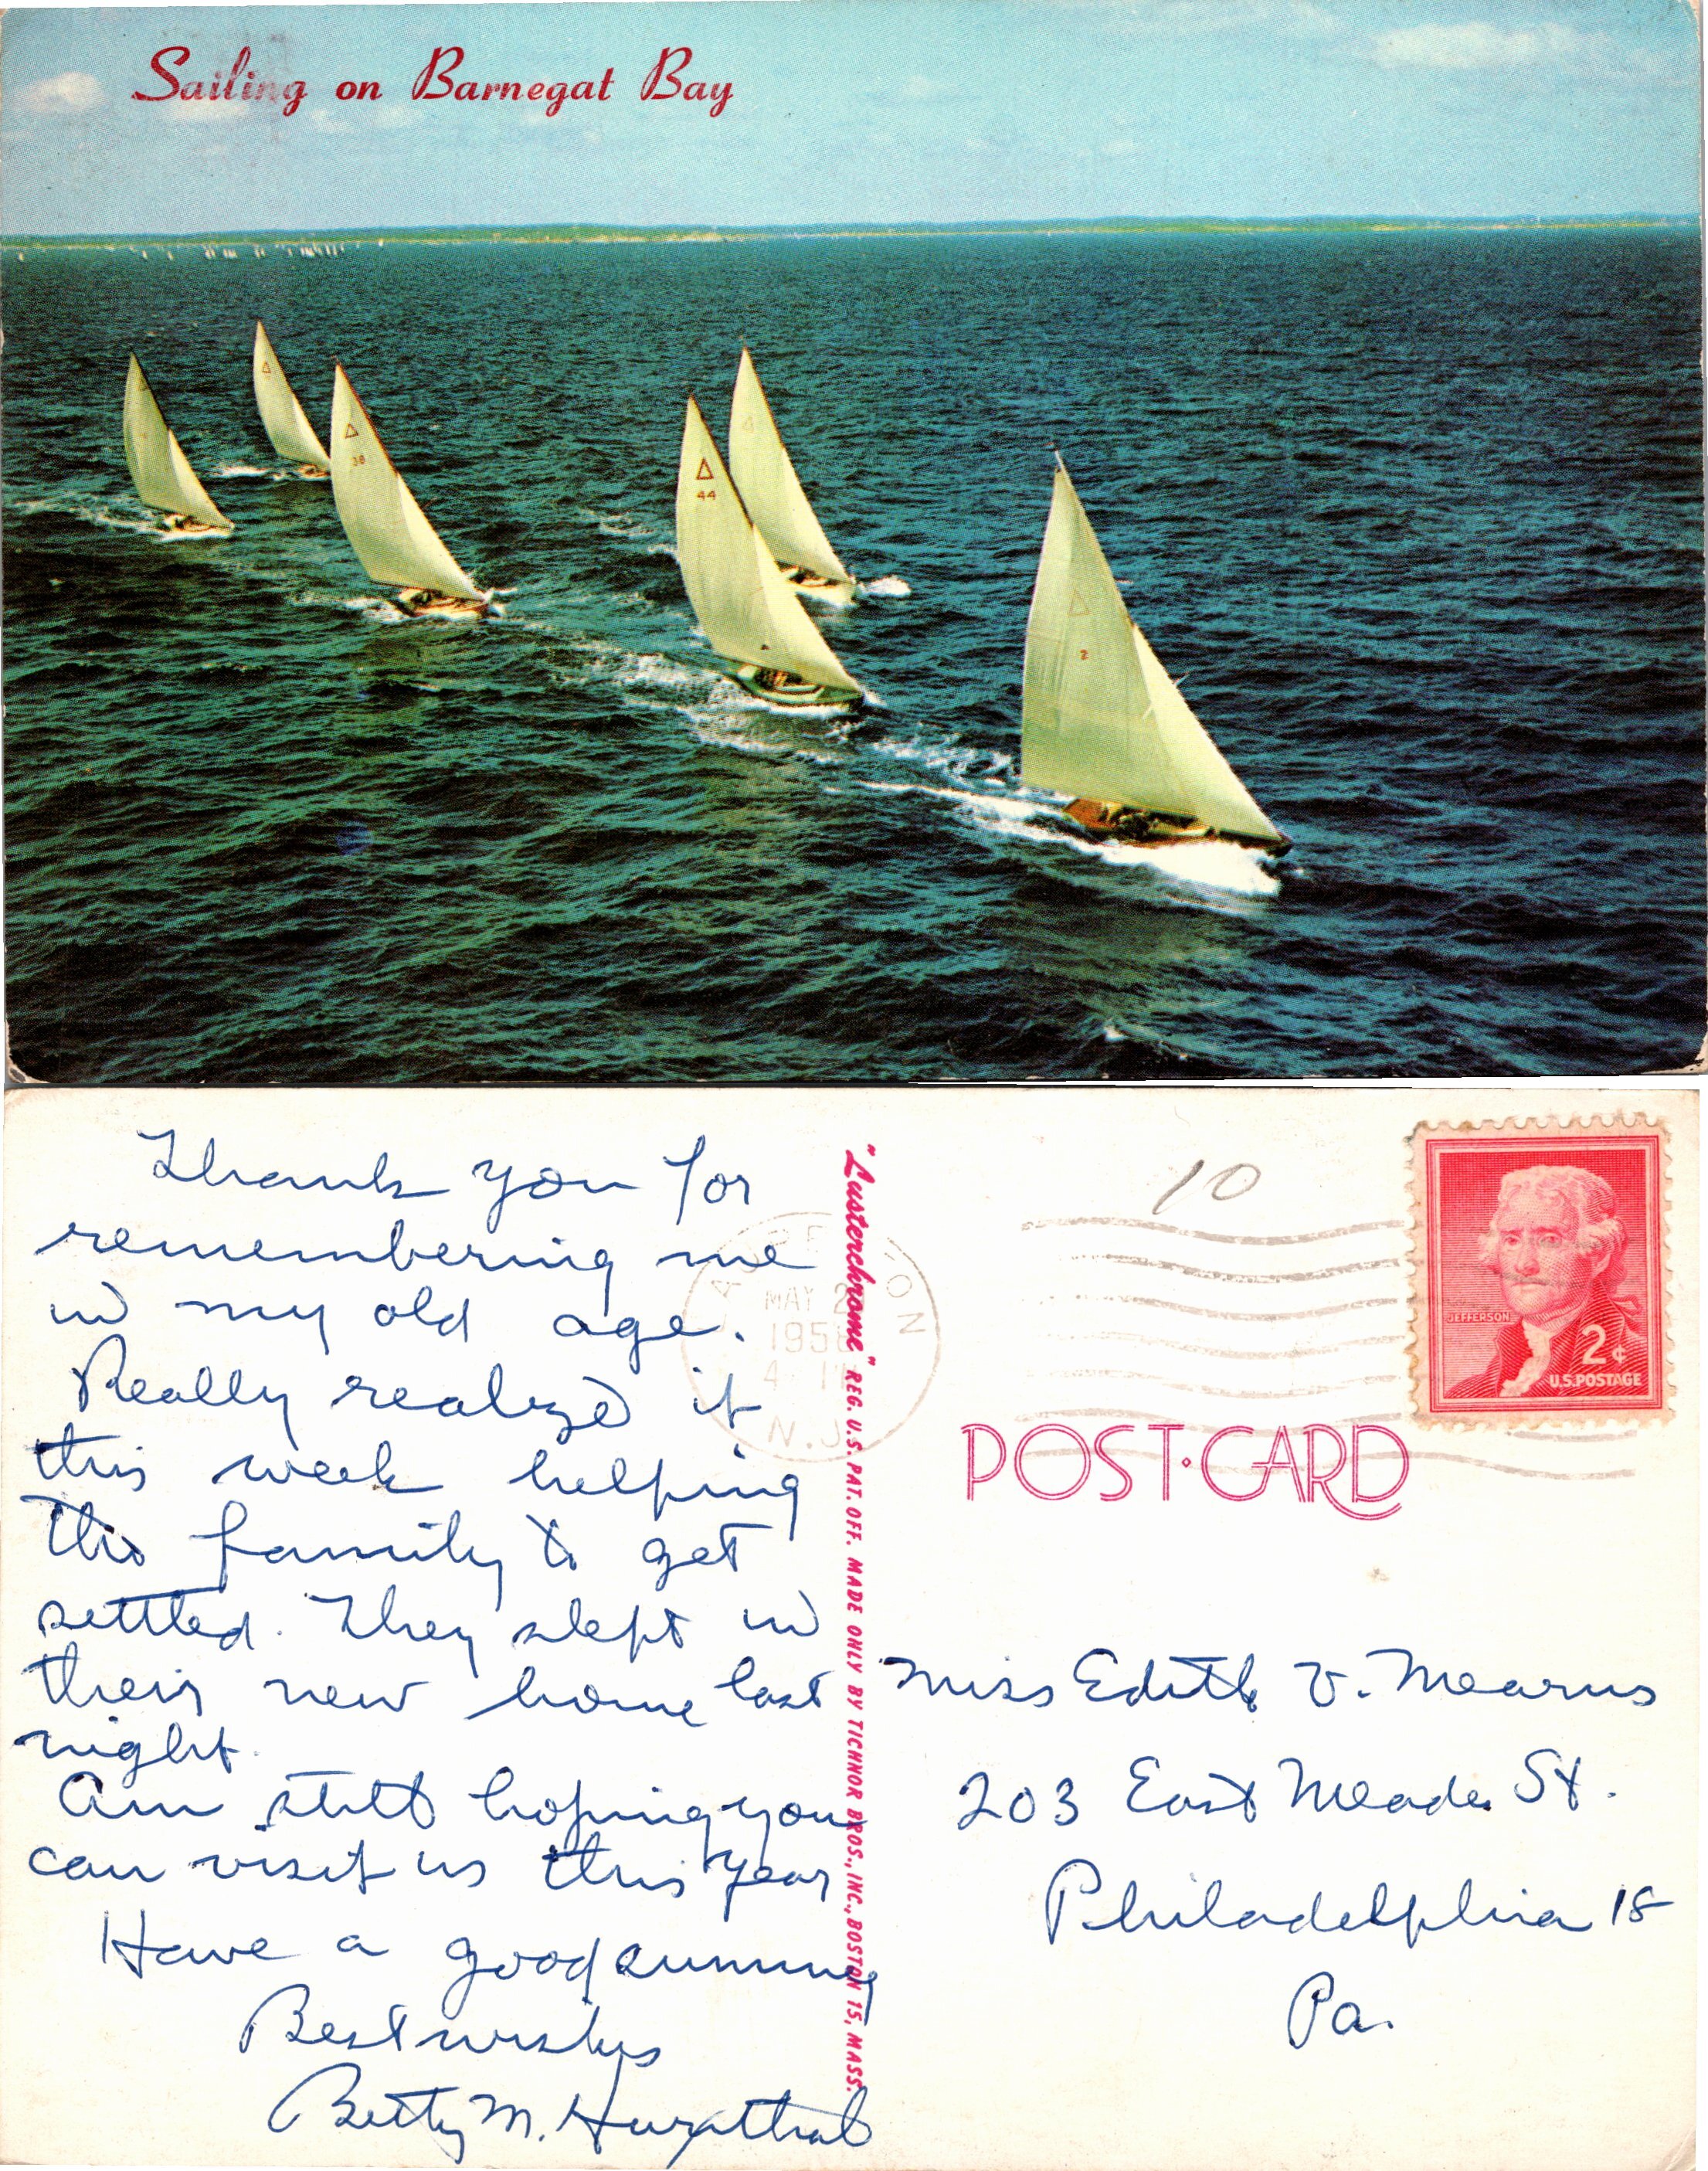 Sailing on Barnegat Bay
38
44
2
Thank you for
remembering me
in my old age.
Really realize it
this week helping
this family to get
settled. They slept in
their new home last
night.
Am still hoping you
can visit us this year
Have a good summer
Best wishes
Betty M.
"Lusterchrome" REG. U.S. PAT. OFF. MADE ONLY BY TICHNOR BROS., INC., BOSTON 15, MASS.
MAY 2
195
4
N.J.
10
JEFFERSON
2¢
U.S. POSTAGE
POST·CARD
Miss Edith V. Mearns
203 East Meade St.
Philadelphia 18
Pa.